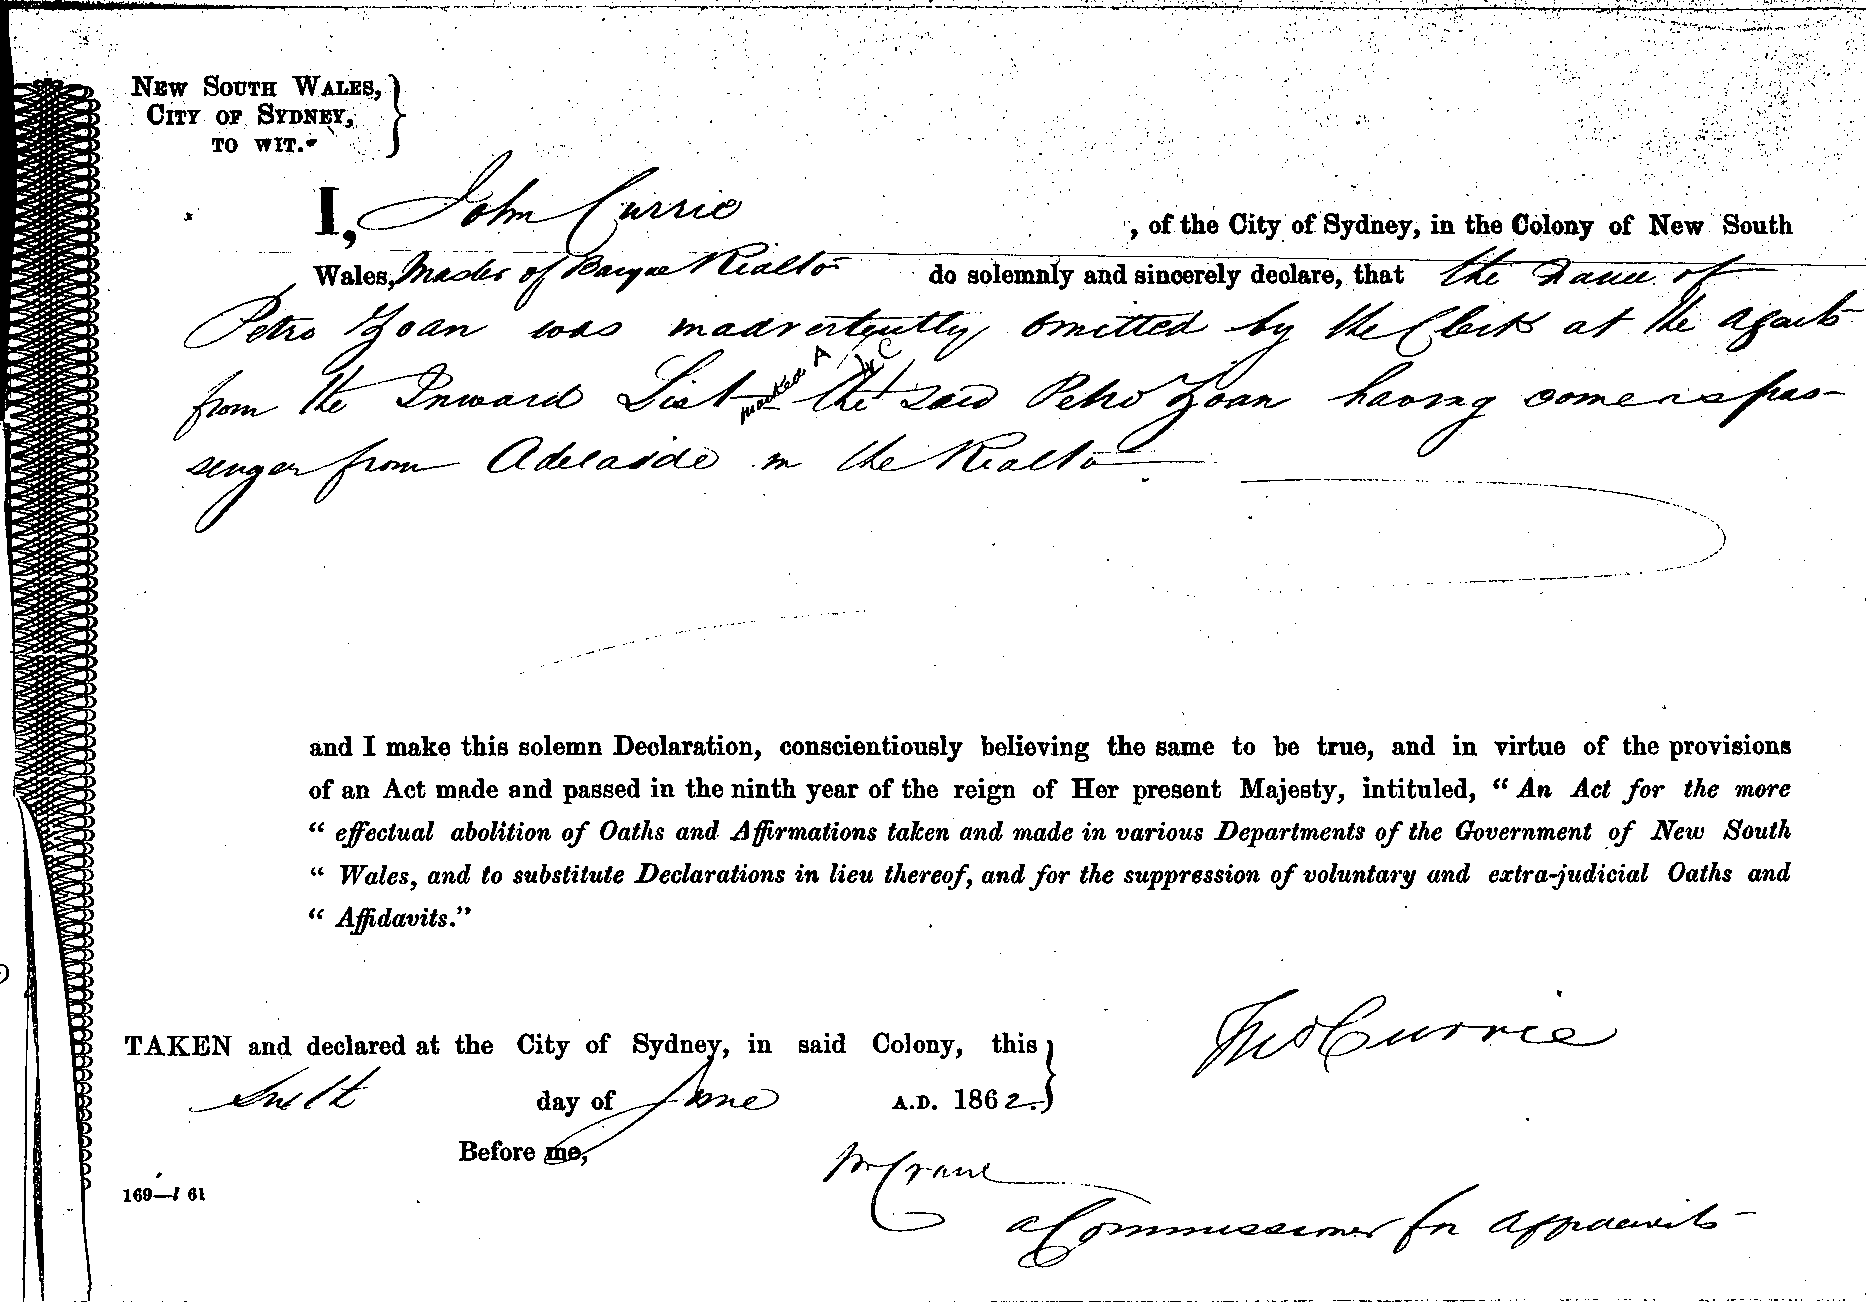 NEW SOUTH WALES,
CITY OF SYDNEY,
TO WIT.
I, John Currie , of the City of Sydney, in the Colony of New South
Wales, Master of Barque Rialto do solemnly and sincerely declare, that the Name of
Petro Zoan was inadvertently omitted by the Clerk at the Agents
from the Inward List marked A the said Petro Zoan having come as pas-
senger from Adelaide in the Rialto
and I make this solemn Declaration, conscientiously believing the same to be true, and in virtue of the provisions
of an Act made and passed in the ninth year of the reign of Her present Majesty, intituled, “ An Act for the more
“ effectual abolition of Oaths and Affirmations taken and made in various Departments of the Government of New South
“ Wales, and to substitute Declarations in lieu thereof, and for the suppression of voluntary and extra-judicial Oaths and
“ Affidavits.”
TAKEN and declared at the City of Sydney, in said Colony, this
day of June A.D. 1862.
Currie
Before me,
Crane
169—/ 61
a Commissioner for Affidavits